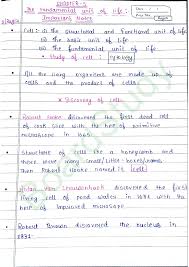 CHAPTER-5
The fundamental unit of life :
Important Notes
Cell :- is the structural and functional unit of life
(i) the basic unit of life
(ii) the fundamental unit of life
* Study of cell : cytology
All the living organisms are made up of cells
and the product of cells.
* Discovery of cell:
Robert Hooke discovered the first dead cell
of cork slice with the help of primitive
microscope in 1665.
Structure of cells like a honeycomb and
these were many small/little boxes/rooms,
then Robert Hooke named it [cell]
Anton Van Leeuwenhoek discovered the first
living cell of pond water in 1674 with the
help of improved microscope
Robert Brown discovered the nucleus in
1831.